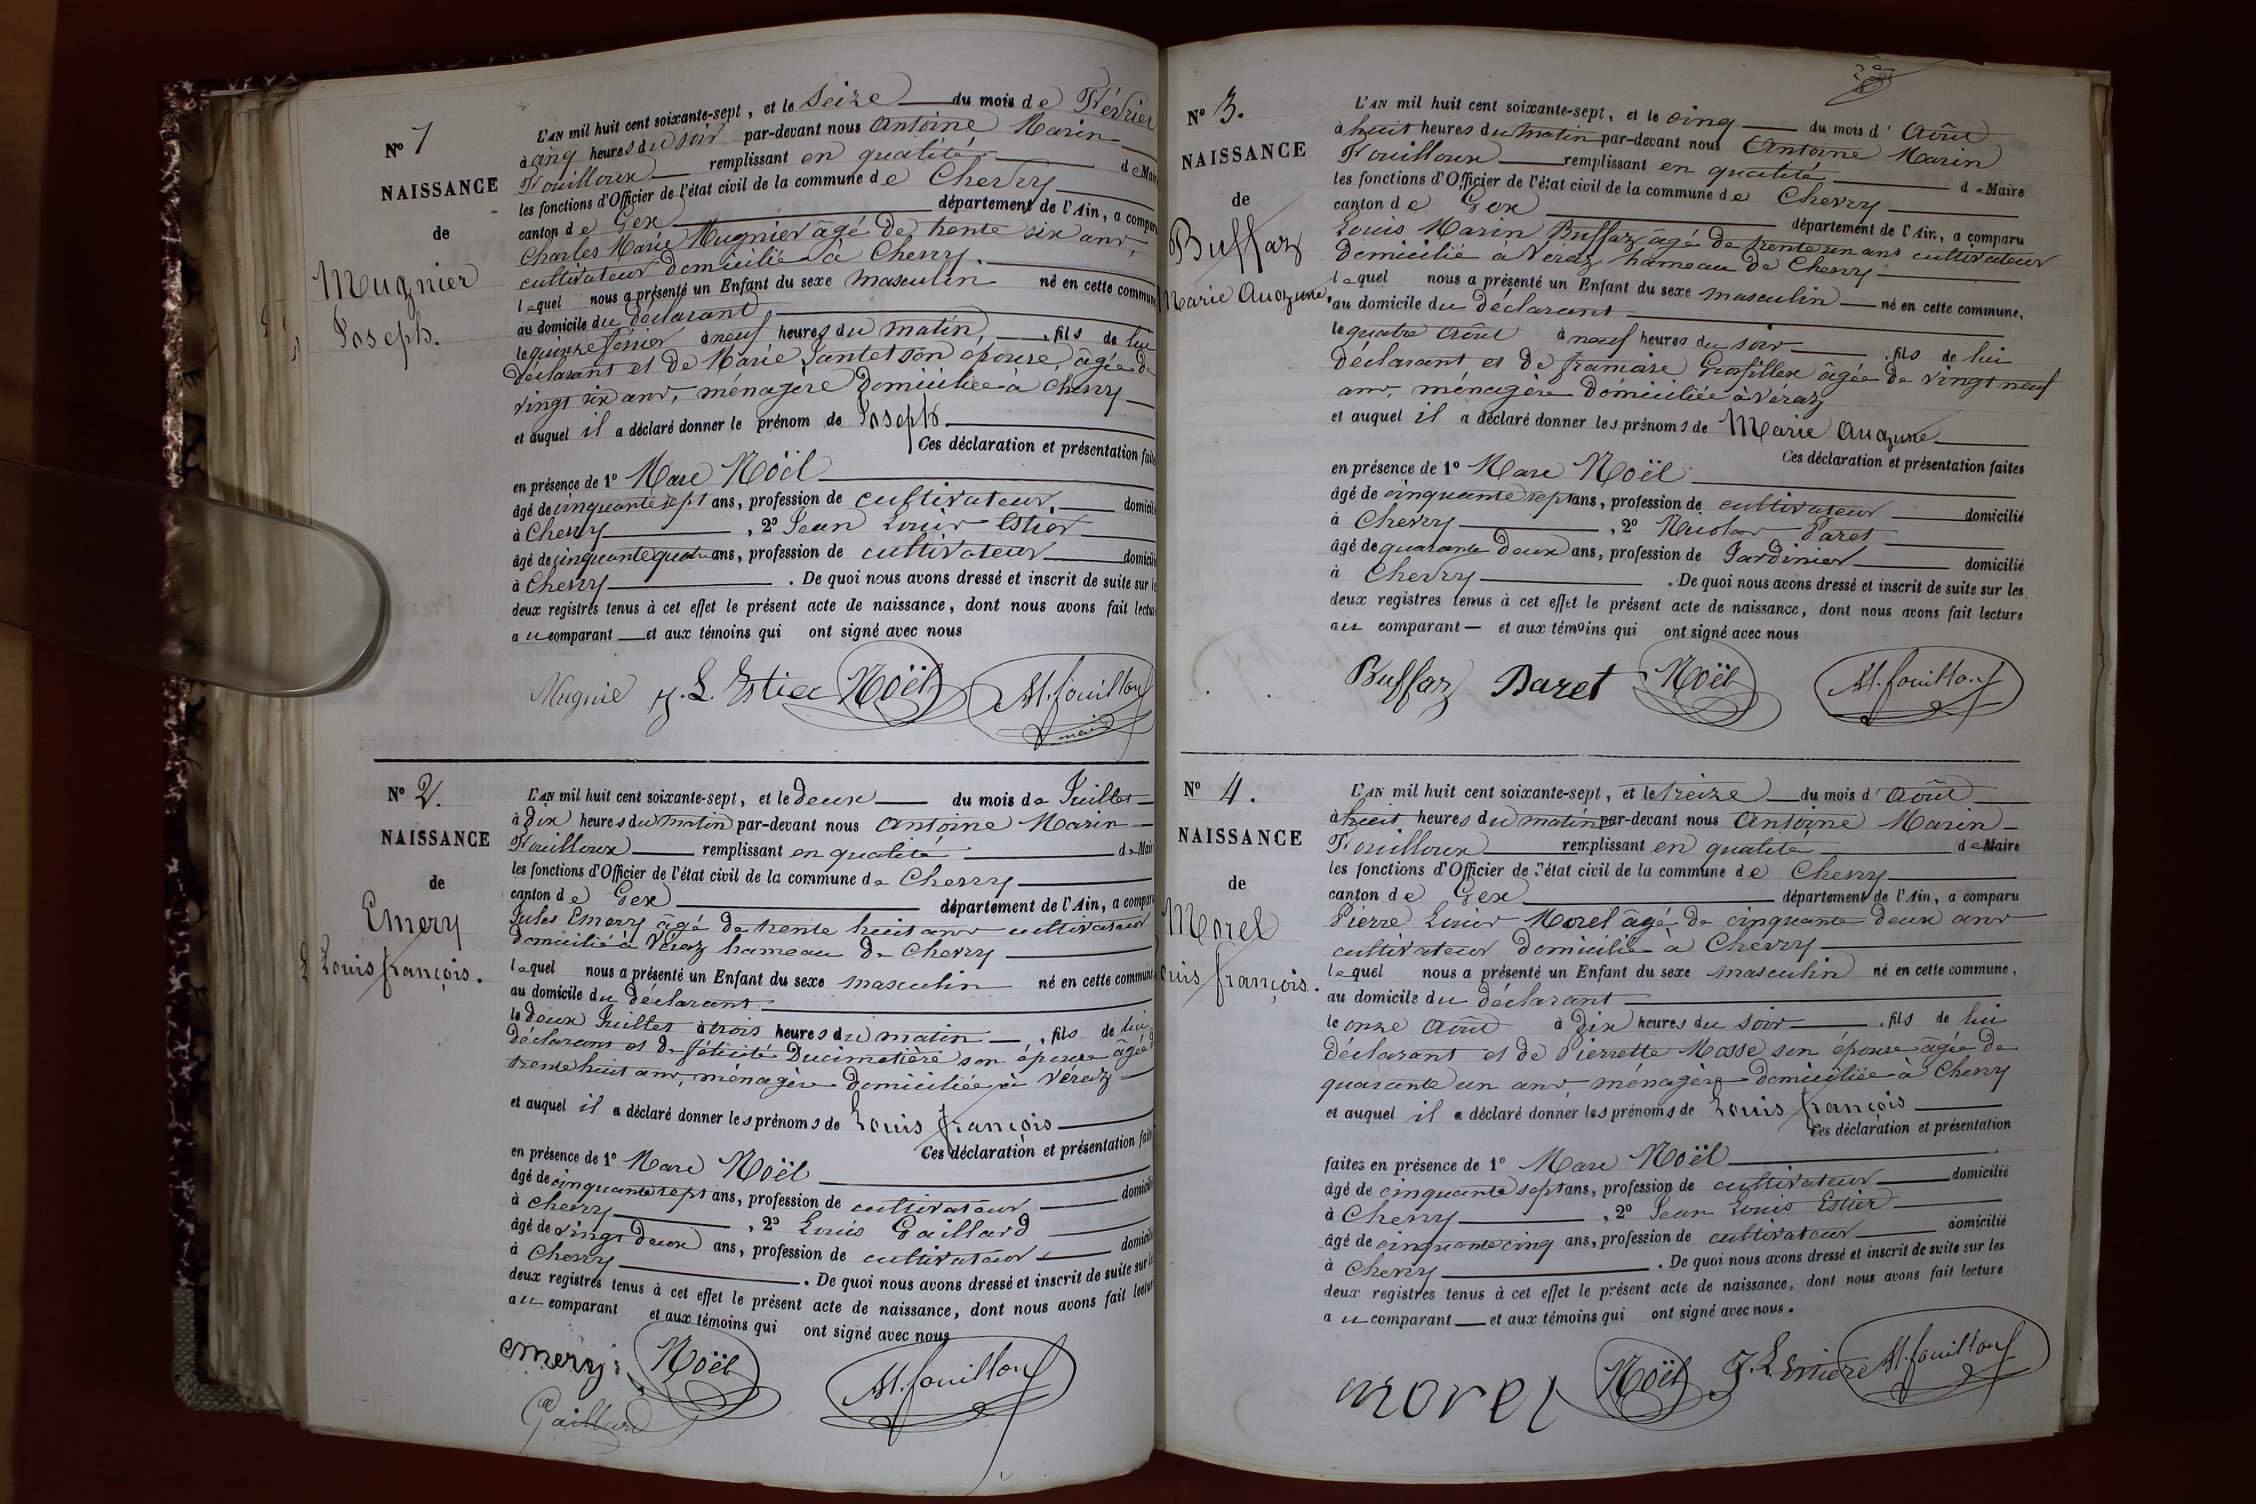 N° 1
NAISSANCE
de
Mugnier
Joseph.
L'AN mil huit cent soixante-sept, et le seize du mois de Février
à cinq heures du soir par-devant nous Antoine Marin
Fouilloux remplissant en qualité de Mair
les fonctions d'Officier de l'état civil de la commune de Chevry
canton de Gex département de l'Ain, a compar
Charles Marie Mugnier âgé de trente six ans,
cultivateur domicilié à Chevry.
lequel nous a présenté un Enfant du sexe masculin né en cette commune
au domicile du déclarant
le quinze février à neuf heures du matin, fils de lui
déclarant et de Marie Jantet son épouse, âgée de
vingt six ans, ménagère domiciliée à Chevry
et auquel il a déclaré donner le prénom de Joseph
Ces déclaration et présentation faite
en présence de 1° Marc Noël
âgé de cinquante sept ans, profession de cultivateur, domicili
à Chevry, 2° Jean Louis Estier
âgé de cinquante quatre ans, profession de cultivateur domicili
à Chevry. De quoi nous avons dressé et inscrit de suite sur le
deux registres tenus à cet effet le présent acte de naissance, dont nous avons fait lectu
au comparant et aux témoins qui ont signé avec nous
Mugnie J. L. Estier Noël M. fouilloux
maire
N° 2.
NAISSANCE
de
Emery
Louis françois.
L'AN mil huit cent soixante-sept, et le deux du mois de Juillet
à dix heures du matin par-devant nous Antoine Marin
Fouilloux remplissant en qualité de Mair
les fonctions d'Officier de l'état civil de la commune de Chevry
canton de Gex département de l'Ain, a compar
Jules Emery âgé de trente huit ans cultivateur
domicilié à Véraz hameau de Chevry
lequel nous a présenté un Enfant du sexe masculin né en cette commune
au domicile du déclarant
le deux Juillet à trois heures du matin, fils de lui
déclarant et de félicité Ducimetière son épouse âgée d
trente huit ans, ménagère domiciliée à Véraz
et auquel il a déclaré donner les prénoms de Louis françois
Ces déclaration et présentation faite
en présence de 1° Marc Noël
âgé de cinquante sept ans, profession de cultivateur domicili
à Chevry, 2° Louis Gaillard
âgé de vingt deux ans, profession de cultivateur domicili
à Chevry. De quoi nous avons dressé et inscrit de suite sur le
deux registres tenus à cet effet le présent acte de naissance, dont nous avons fait lectur
au comparant et aux témoins qui ont signé avec nous
emery Noël M. fouilloux
Gaillard
N° 3.
NAISSANCE
de
Buffaz
Marie Auozune.
L'AN mil huit cent soixante-sept, et le cinq du mois d'Août
à huit heures du matin par-devant nous Antoine Marin
Fouilloux remplissant en qualité de Maire
les fonctions d'Officier de l'état civil de la commune de Chevry
canton de Gex département de l'Ain, a comparu
Louis Marin Buffaz âgé de trente un ans cultivateur
domicilié à Véraz hameau de Chevry
lequel nous a présenté un Enfant du sexe masculin né en cette commune,
au domicile du déclarant
le quatre Août à neuf heures du soir, fils de lui
déclarant et de françoise Grosfillex âgée de vingt neuf
ans, ménagère domiciliée à Véraz
et auquel il a déclaré donner les prénoms de Marie
Ces déclaration et présentation faites
en présence de 1° Marc Noël
âgé de cinquante sept ans, profession de cultivateur domicilié
à Chevry, 2° Nicolas Paret
âgé de quarante deux ans, profession de Jardinier domicilié
à Chevry. De quoi nous avons dressé et inscrit de suite sur les
deux registres tenus à cet effet le présent acte de naissance, dont nous avons fait lecture
au comparant et aux témoins qui ont signé avec nous
Buffaz Paret Noël M. fouilloux
N° 4.
NAISSANCE
de
Morel
ouis françois.
L'AN mil huit cent soixante-sept, et le treize du mois d'Août
à huit heures du matin par-devant nous Antoine Marin
Fouilloux remplissant en qualité de Maire
les fonctions d'Officier de l'état civil de la commune de Chevry
canton de Gex département de l'Ain, a comparu
Pierre Louis Morel âgé de cinquante deux ans
cultivateur domicilié à Chevry
lequel nous a présenté un Enfant du sexe masculin né en cette commune,
au domicile du déclarant
le onze Août à dix heures du soir, fils de lui
déclarant et de Pierrette Mosse son épouse âgée de
quarante un ans ménagère domiciliée à Chevry
et auquel il a déclaré donner les prénoms de Louis françois
Ces déclaration et présentation
faites en présence de 1° Marc Noël
âgé de cinquante sept ans, profession de cultivateur domicilié
à Chevry, 2° Jean Louis Estier
âgé de cinquante cinq ans, profession de cultivateur domicilié
à Chevry. De quoi nous avons dressé et inscrit de suite sur les
deux registres tenus à cet effet le présent acte de naissance, dont nous avons fait lecture
au comparant et aux témoins qui ont signé avec nous.
morel Noël J. L. M. fouilloux